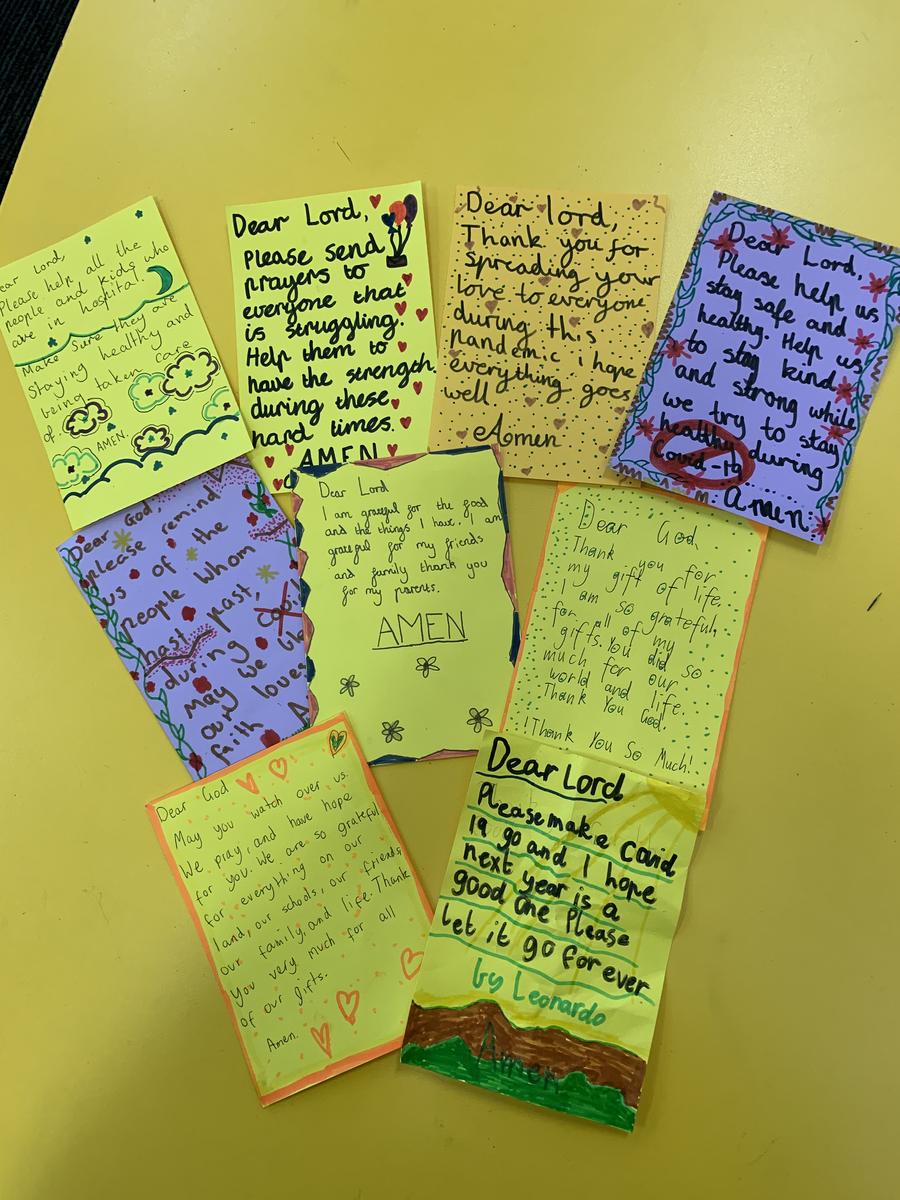 ear Lord,
Please help all the
people and kids who
are in hospital.
Make sure they are
Staying healthy and
being taken care
of.
AMEN.
Dear Lord,
Please send
prayers to
everyone that
is struggling.
Help them to
have the strength
during these
hard times.
AMEN
Dear lord,
Thank you for
spreading your
love to everyone
during this
Pandemic i hope
everything goes
well
Amen
Dear Lord,
Please help us
stay safe and
healthy. Help us
to stay kind
and strong while
we try to stay
healthy during
Covid-19
Amen
Dear God,
please remind
us of the
people whom
hast past,
during
May we
our loves
faith
Dear Lord
I am grateful for the food
and the things I have. I am
grateful for my friends
and family thank you
for my parents.
AMEN
Dear God
Thank you for
my gift of life.
I am so grateful,
for all of my
gifts. You did so
much for our
world and life.
Thank You God.
!Thank You So Much!
Dear God
May you watch over us.
We pray, and have hope
for you. We are so grateful
for everything on our
land, our schools, our friends,
our family, and life. Thank
You very much for all
of our gifts.
Amen.
Dear Lord
Please make Covid
19 go and I hope
next year is a
good one Please
let it go for ever
by Leonardo
Amen